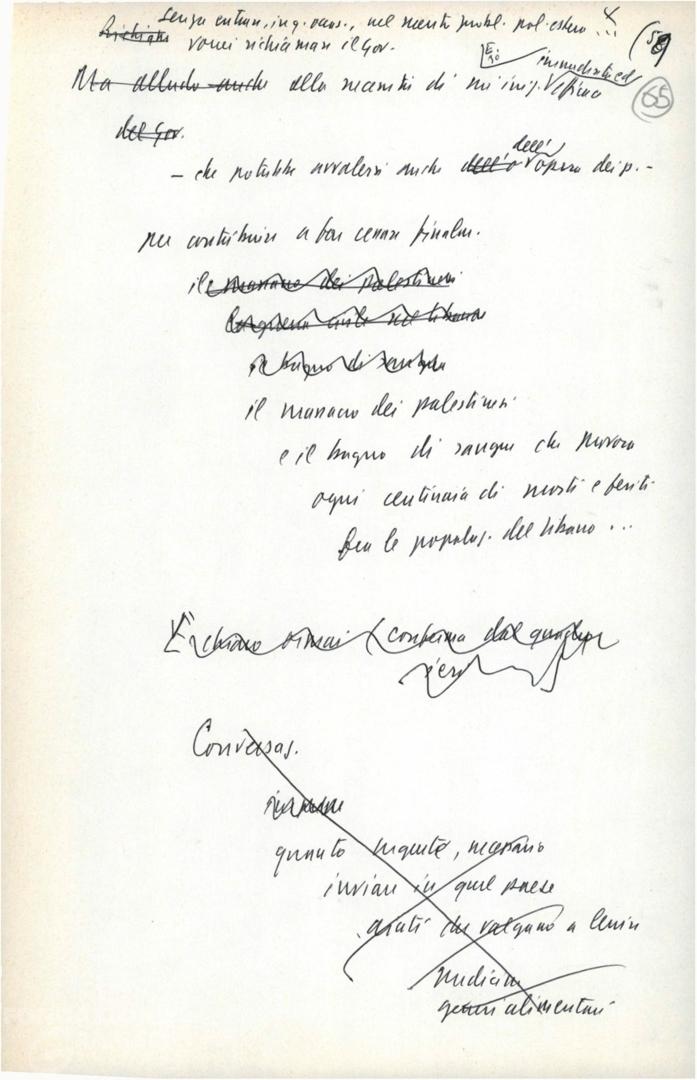 Senza entrare, in q. occas., nel recente probl. pol. estera ...
Richiamo vorrei richiamare il Gov.
58
65
E. 70 immediata ed
Ma alludo anche alla necessità di un' iniz.
del Gov.
dell'
– che potrebbe avvalersi anche dell'opera dei p. –
per contribuire a far cessare finalm.
il massacro dei palestinesi
la guerra civile nel Libano
il bagno di sangue
il massacro dei palestinesi
e il bagno di sangue che provoca
ogni centinaia di morti e feriti
fra le popolaz. del Libano ...
È chiaro ormai (conferma dal
ieri
Conversaz.
quanto urgente, necessario
inviare in quel paese
aiuti che valgano a lenire
medicin
generi alimentari